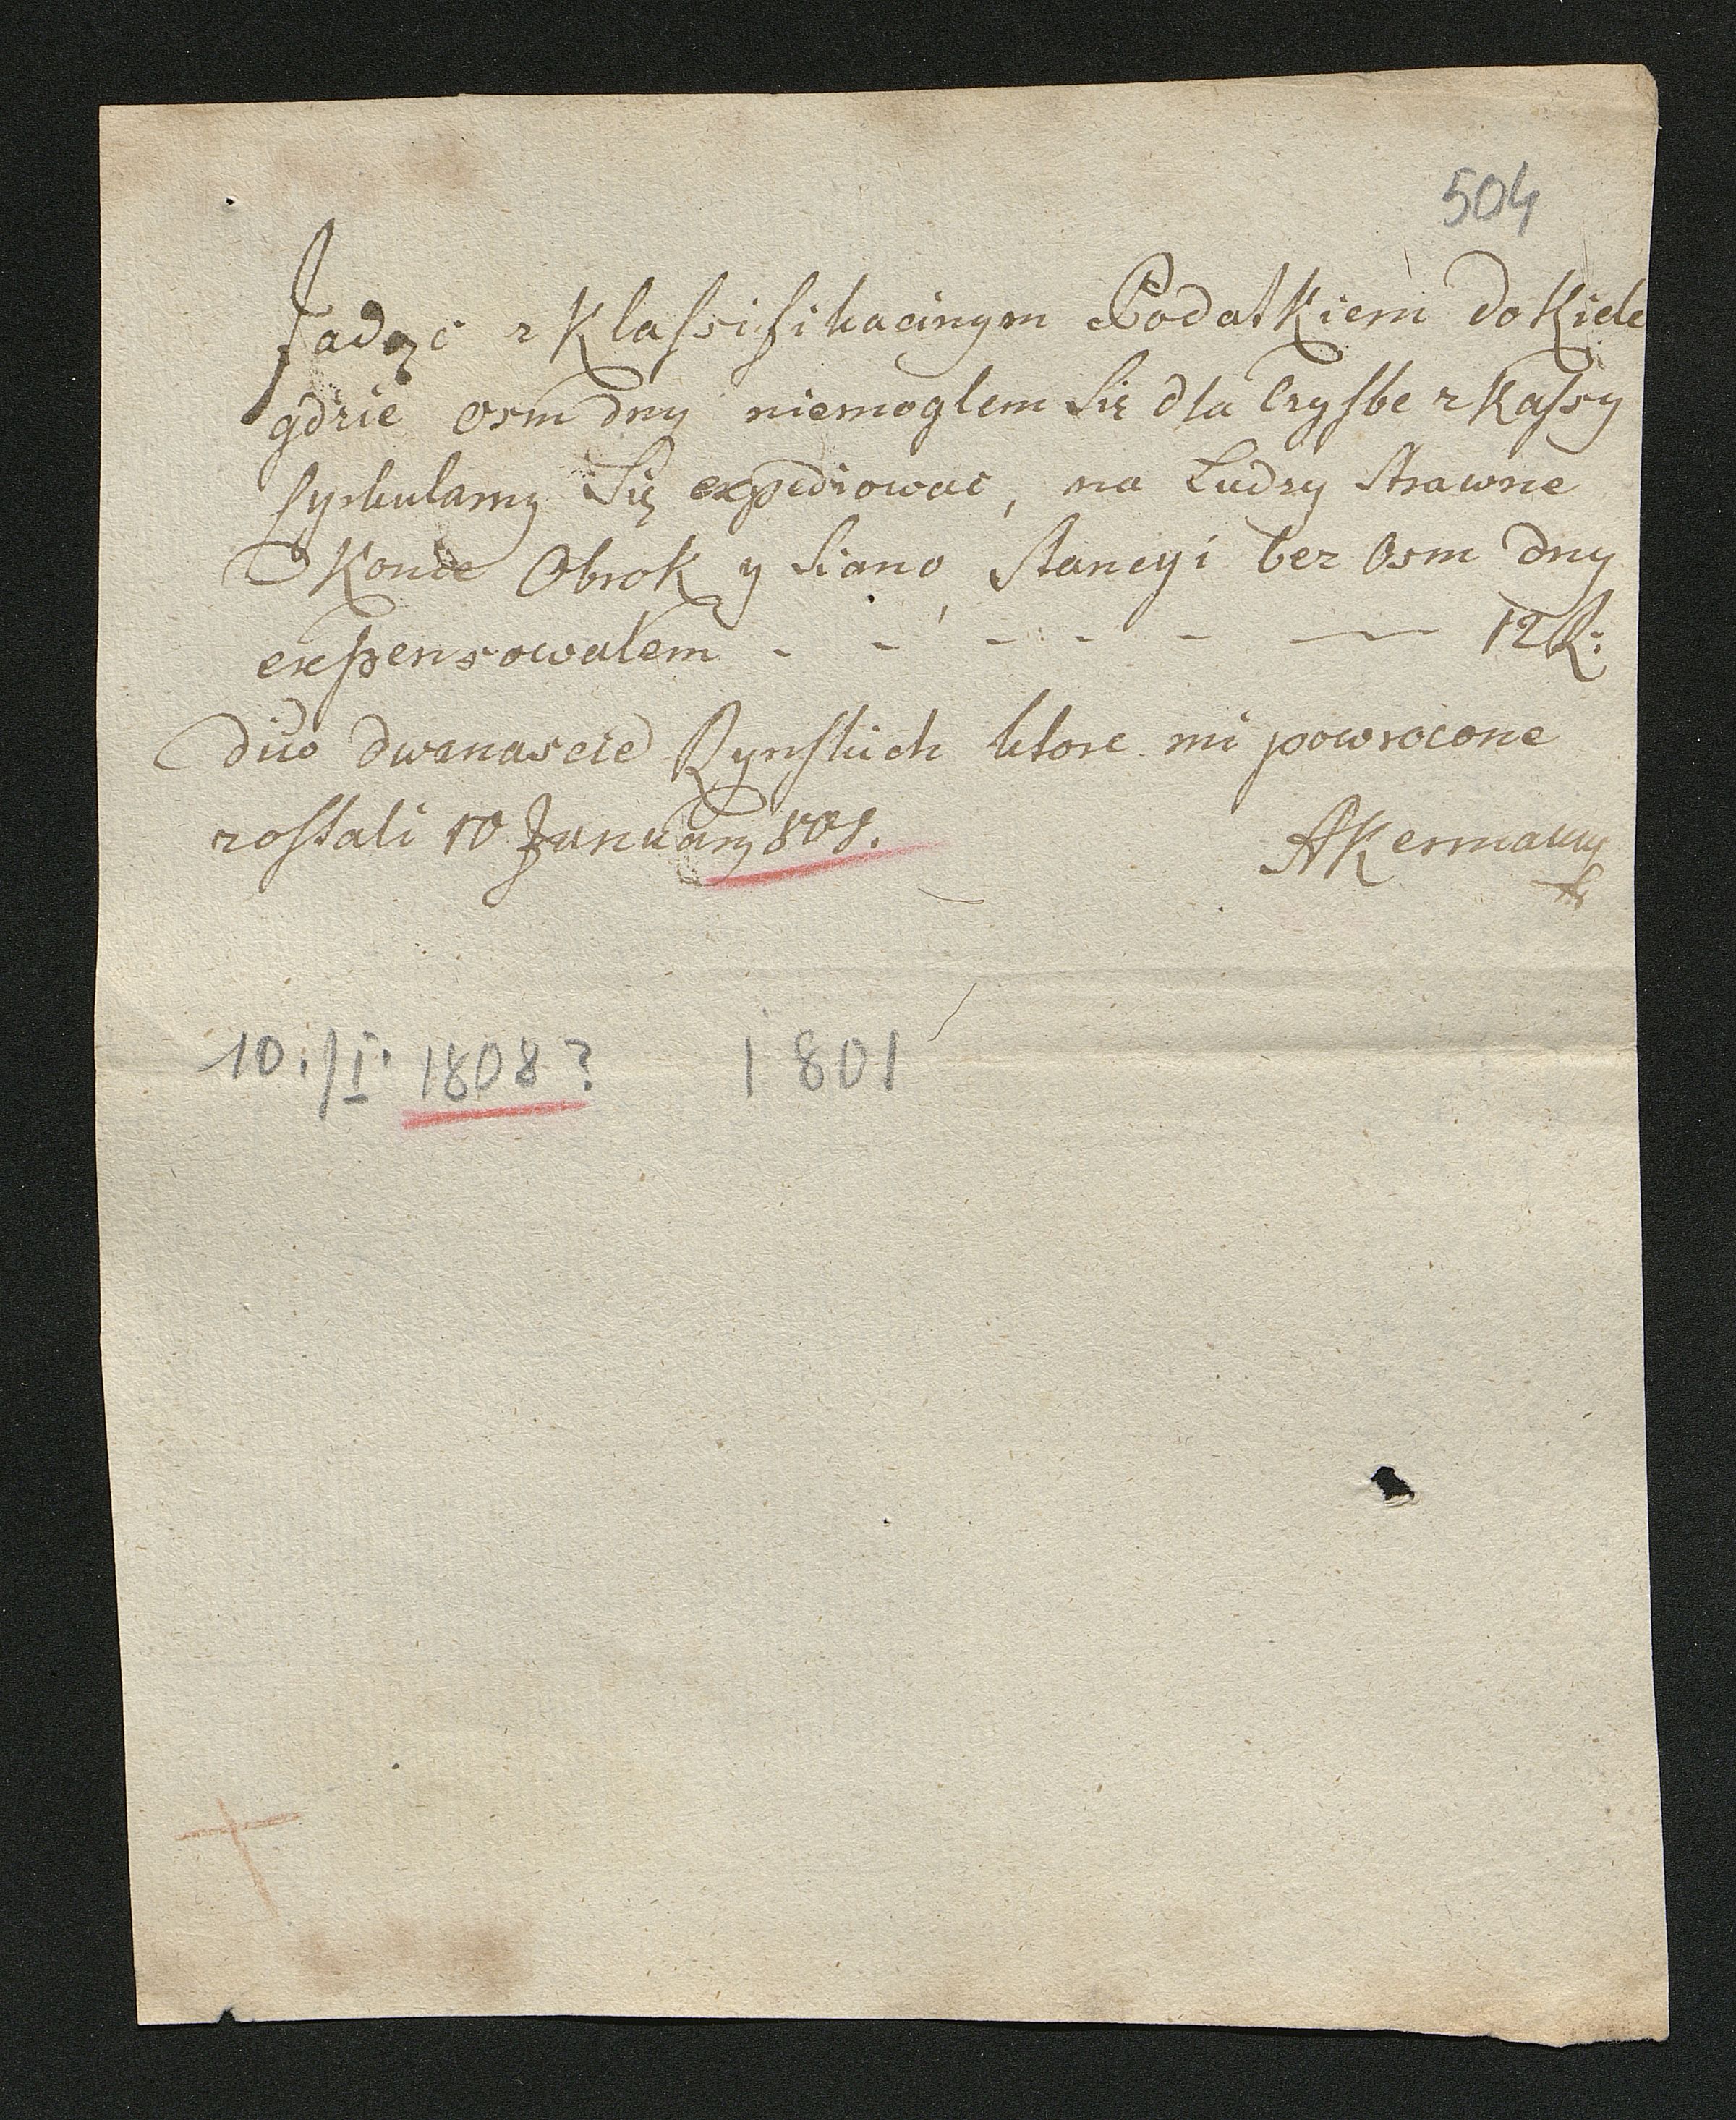 504
Jadąc z Klassifikacinym Podatkiem do Kielc
gdzie osm dny niemoglem Się dla Czyżbe z Kassy
Cyrkularny Się expediować, na Ludzy Strawne
Konie Obrok y Siano, Stancyi bez Osm dny
expensowalem - - - - - — 12 R:
dico dwanascie Rynskich ktore mi powrocone
zostali 10 January 808.
Akermany
10. I. 1808? 1801